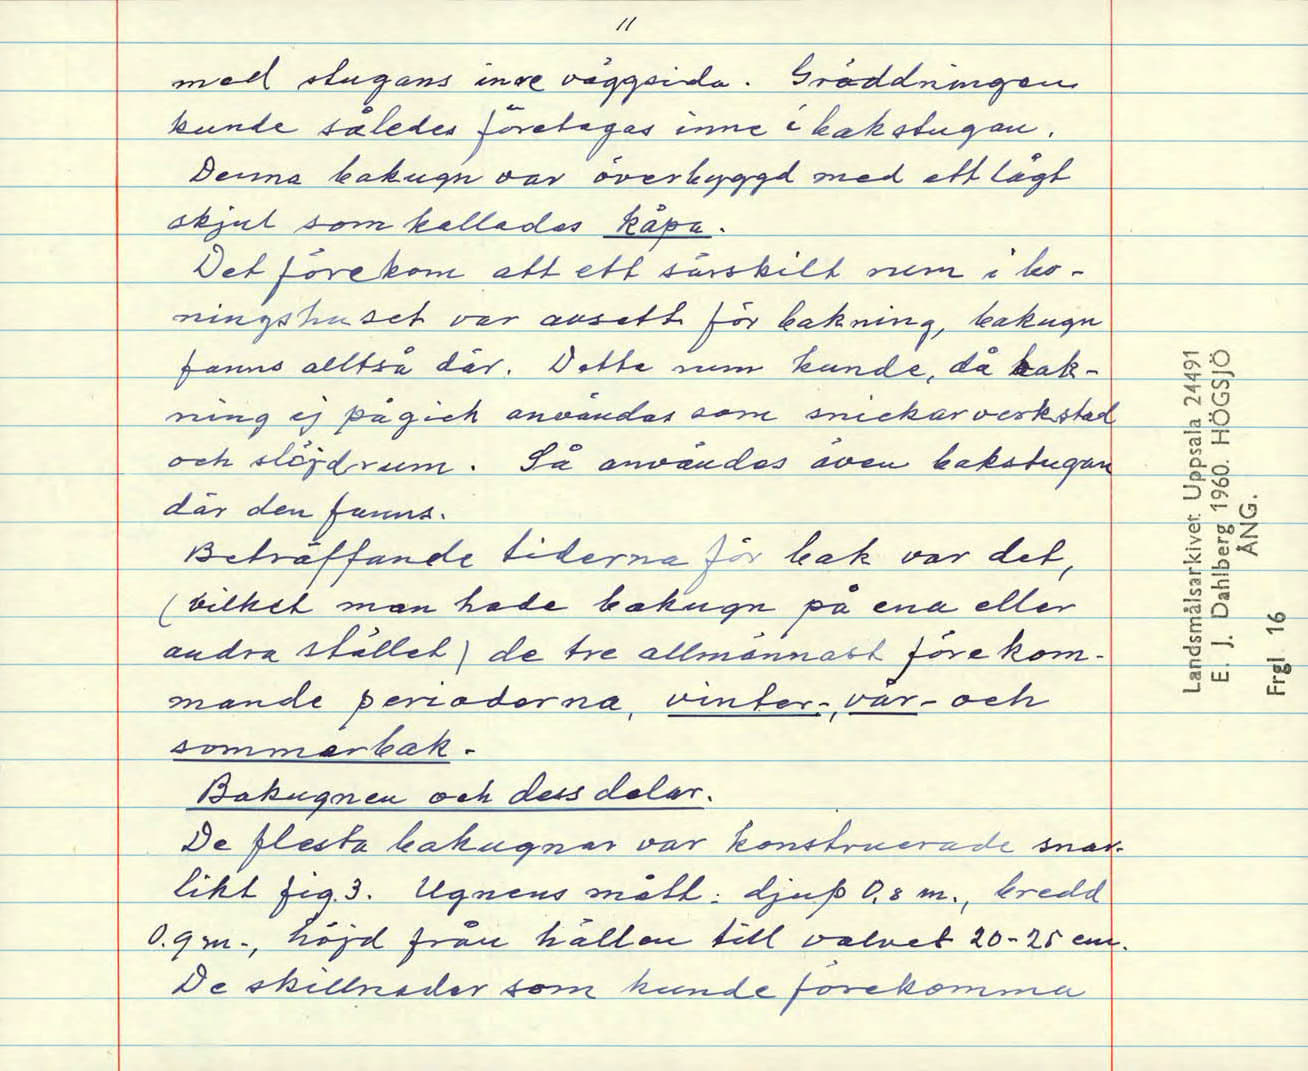 11
med stugans inre väggsida. Gräddningen
kunde således företagas inne i bakstugan.
Denna bakugn var överbyggd med ett lågt
skjul som kallades kåpa.
Det förekom att ett särskilt rum i bo-
ningshuset var avsett för bakning, bakugn
fanns alltså där. Detta rum kunde, då bak-
ning ej pågick användas som snickarverkstad
och slöjdrum. Så användes även bakstugan
där den fanns.
Beträffande tiderna för bak var det,
(vilket man hade bakugn på ena eller
andra stället) de tre allmännast förekom-
mande perioderna, vinter-, vår- och
sommarbak.
Bakugnen och dess delar.
De flesta bakugnar var konstruerade snar-
likt fig.3. Ugnens mått: djup 0,8 m., bredd
0.9 m., höjd från hällen till valvet 20-25 cm.
De skillnader som kunde förekomma
Landsmålsarkivet Uppsala 24491
E. J. Dahlberg 1960. HÖGSJÖ
ÅNG.
Frgl 16